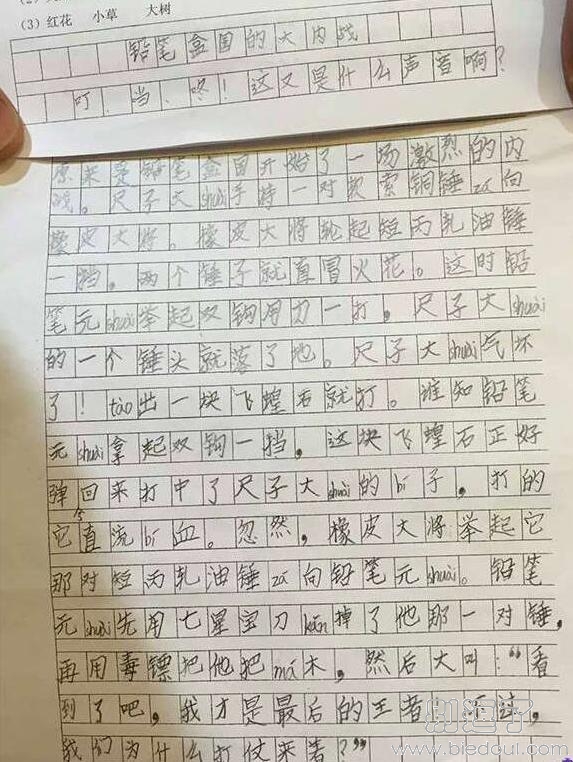 (3) 红花 小草 大树
铅笔盒国的大内战
叮、当、咚！这又是什么声音啊？
原来是铅笔盒国开始了一场激烈的内
战。尺子大shuài手持一对契索铜锤zá向
橡皮大将。橡皮大将轮起短丙轧油锤
一挡，两个锤子就直冒火花。这时铅
笔元shuài举起双钩用力一打，尺子大shuài
的一个锤头就落了地。尺子大shuài气坏
了！tāo出一块飞蝗石就打。谁知铅笔
元shuài拿起双钩一挡，这块飞蝗石正好
弹回来打中了尺子大shuài的bí子，打的
它直流bí血。忽然，橡皮大将举起它
那对短丙轧油锤zá向铅笔元shuài。铅笔
元shuài先用七星宝刀kǎn掉了他那一对锤，
再用毒镖把他把má木，然后大叫：“看
到了吧，我才是最后的王者！不过，
我们为什么打仗来着？”
www.biedoul.com